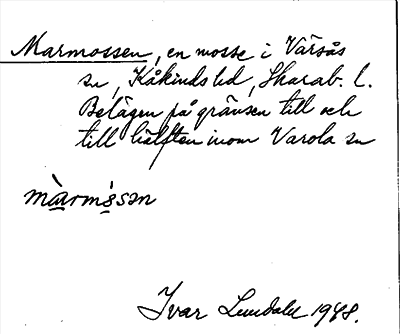 Marmossen, en mosse i Värsås
sn, Kåkinds hd, Skarab. l.
Belägen på gränsen till och
till hälften inom Varola sn
màrmósən
Ivar Lundahl 1948.